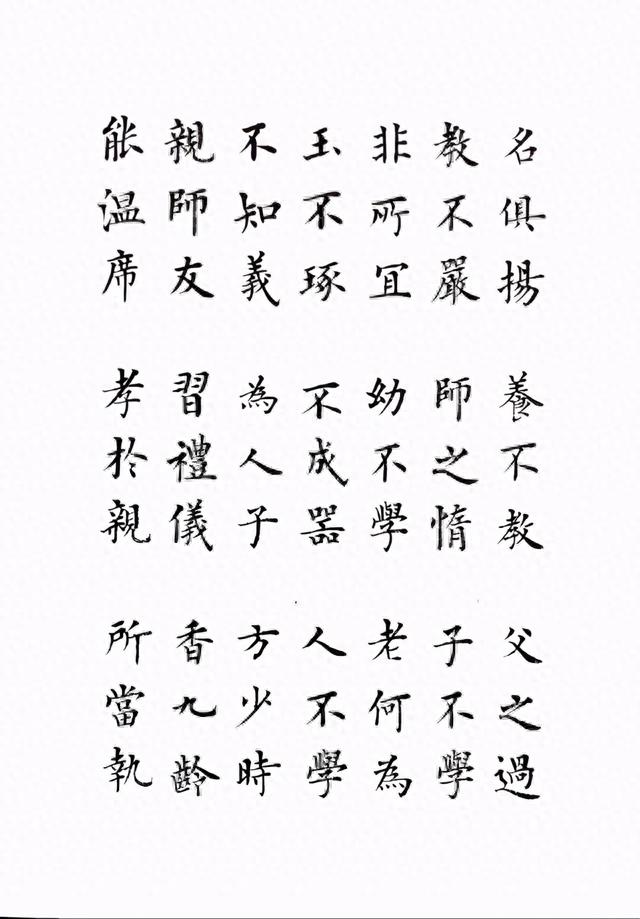 名俱揚 養不教 父之過
教不嚴 師之惰 子不學
非所宜 幼不學 老何為
玉不琢 不成器 人不學
不知義 為人子 方少時
親師友 習禮儀 香九齡
能溫席 孝於親 所當執